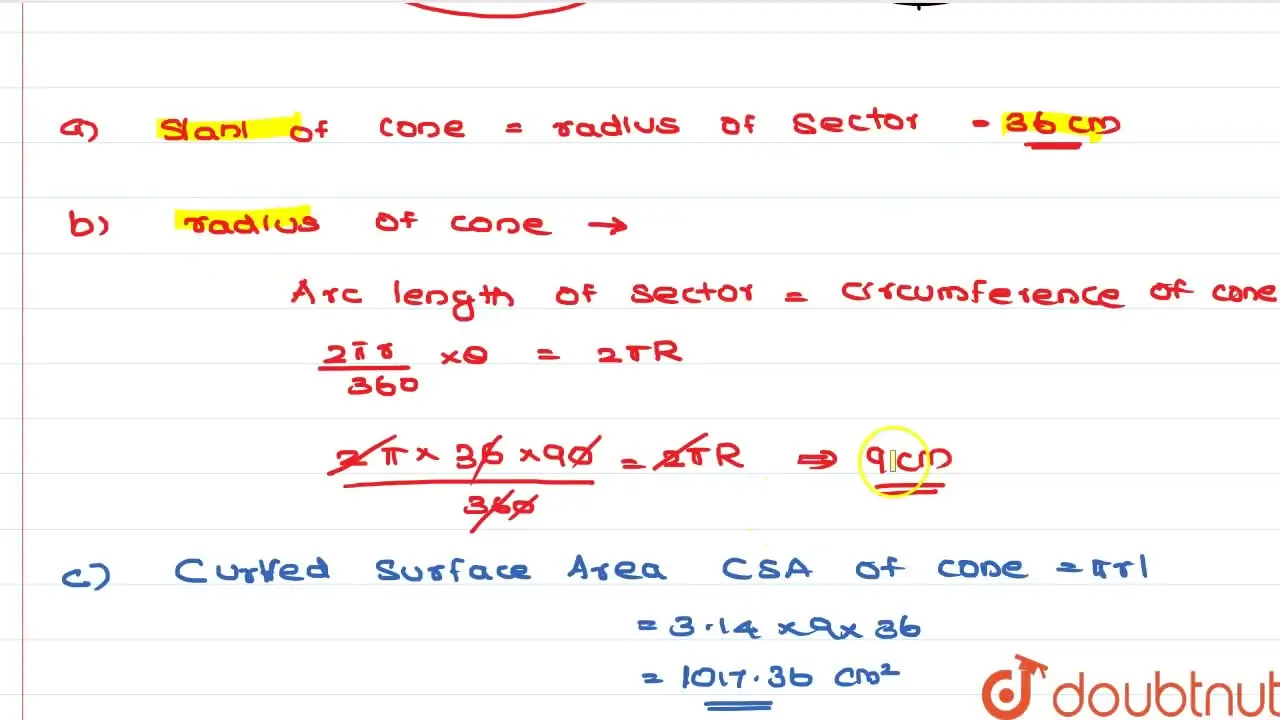 a) Slant of cone = radius of sector = 36 cm
b) radius of cone →
Arc length of sector = circumference of cone
2πr/360 × θ = 2πR
2π × 36 × 90/360 = 2πR ⇒ 9 cm
c) Curved Surface Area CSA of cone = πrl
= 3.14 × 9 × 36
= 1017.36 cm²
doubtnut